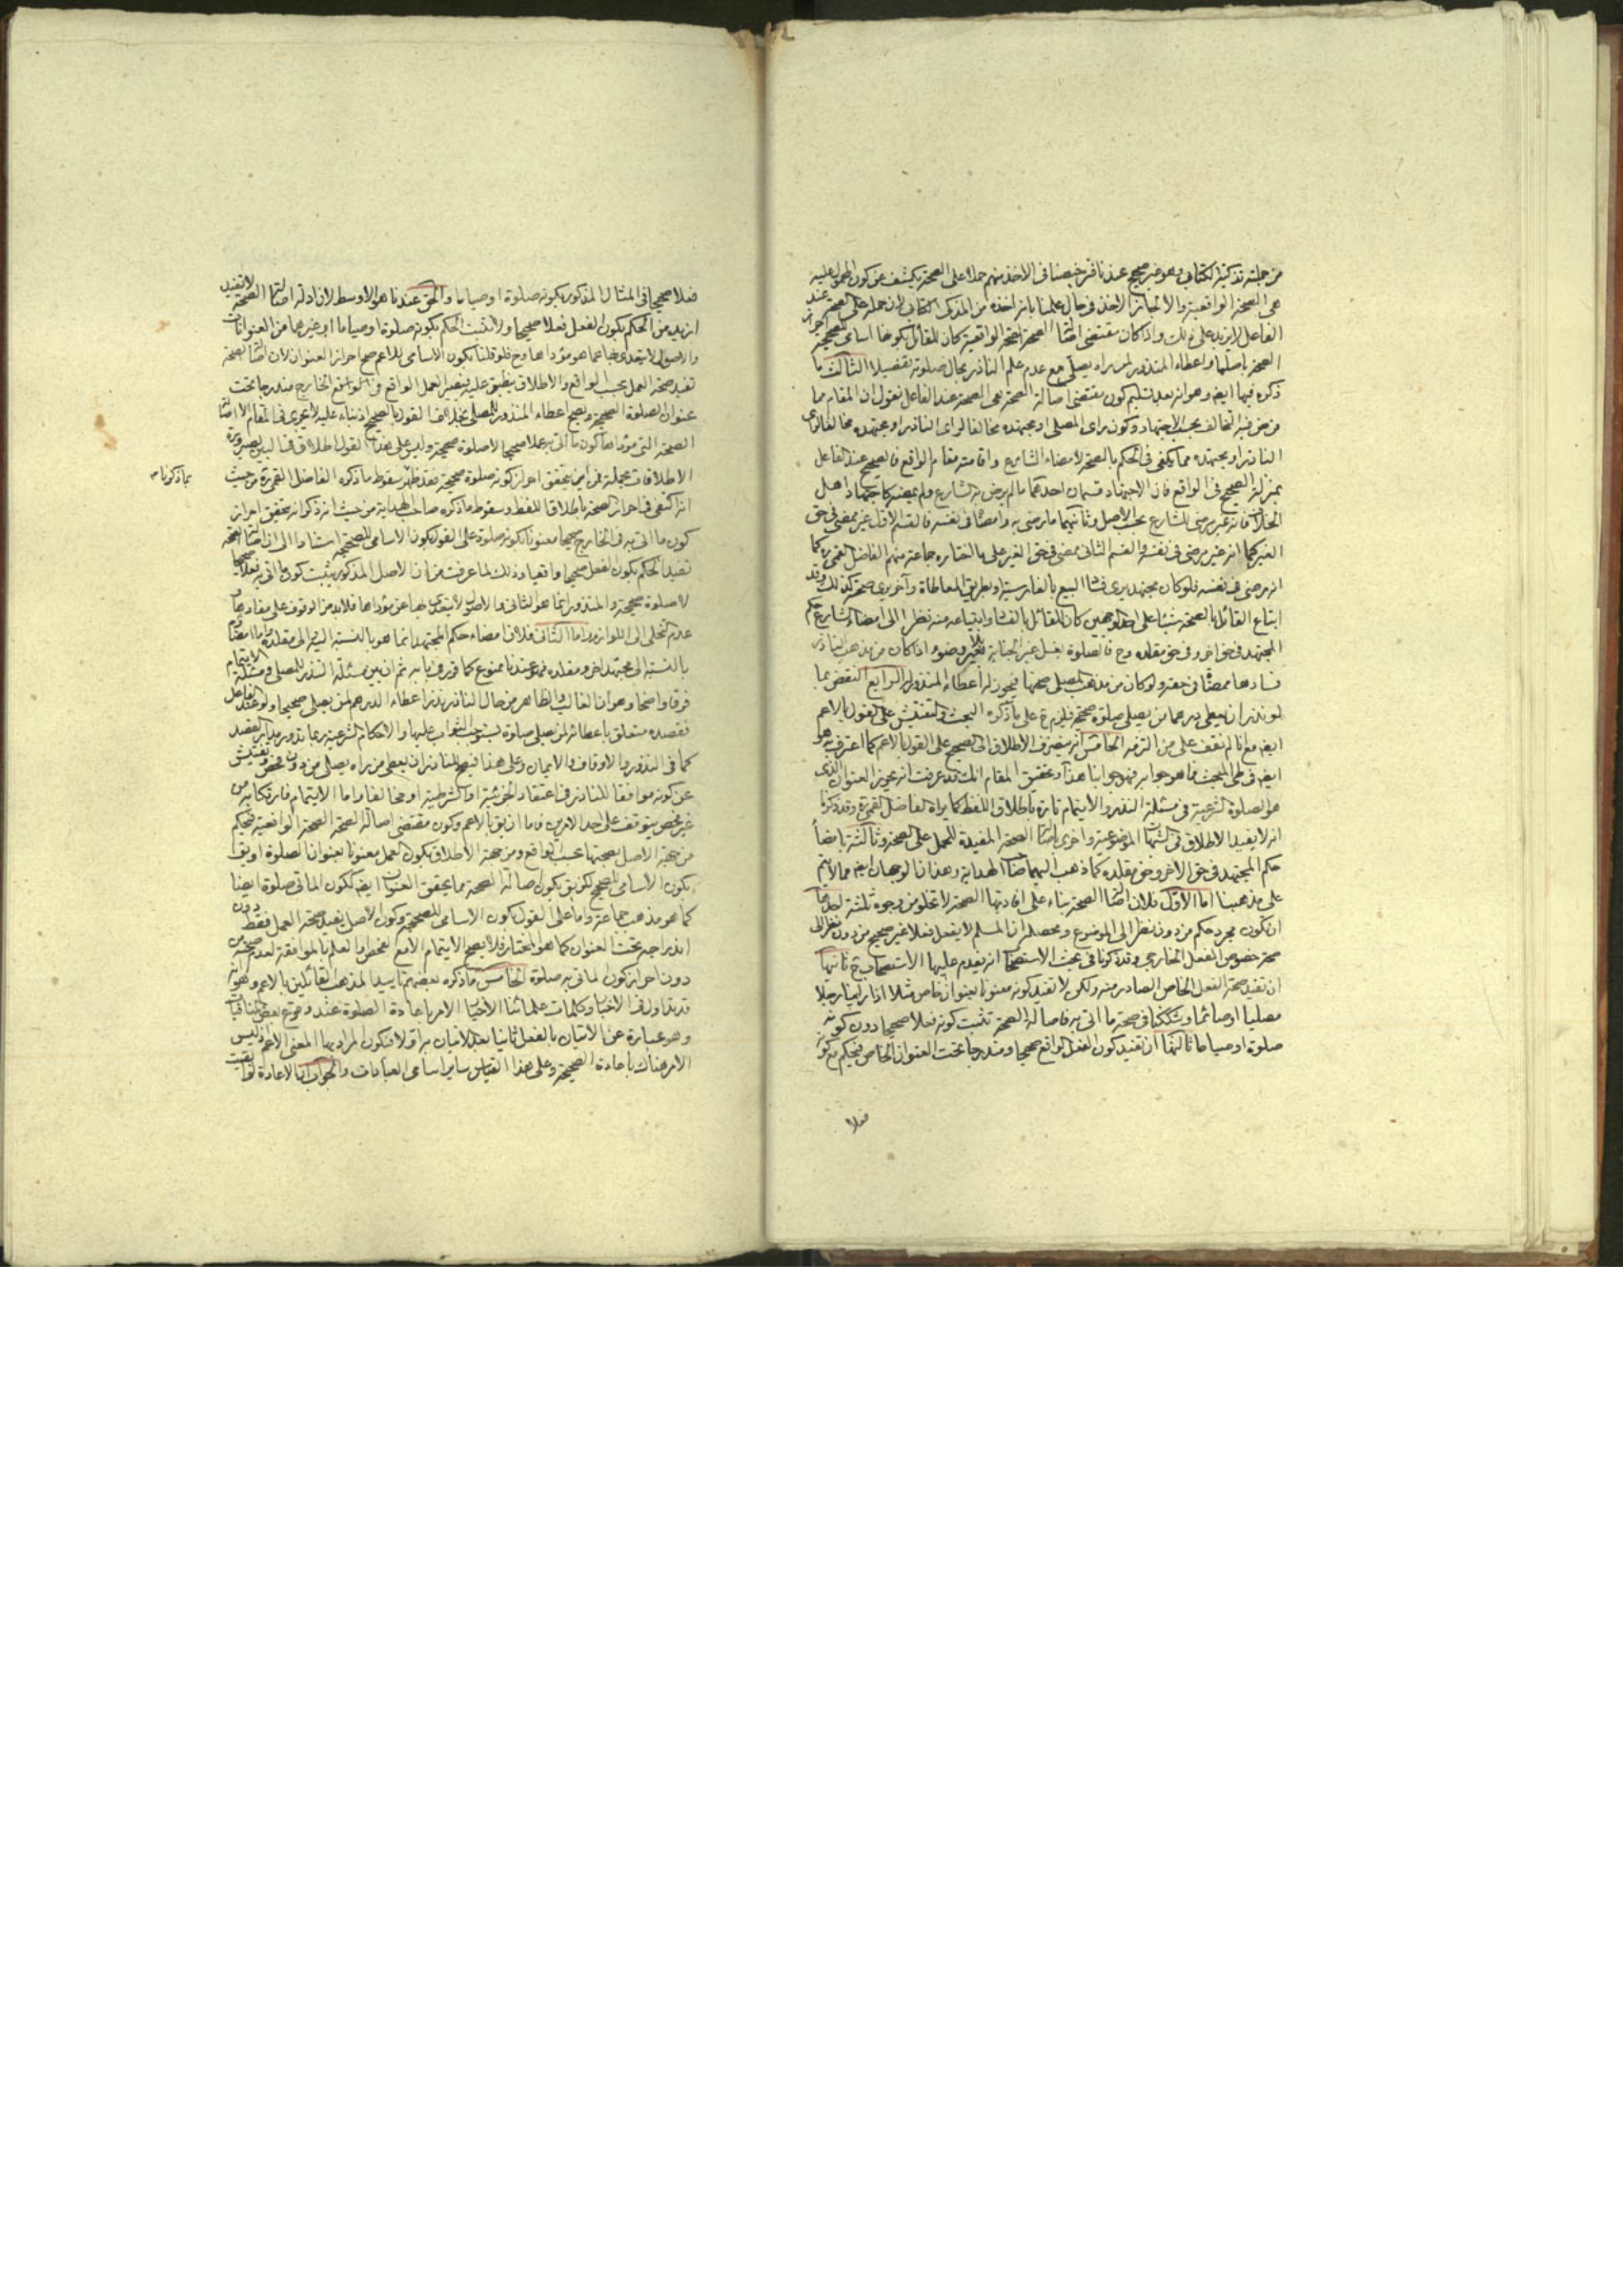 من جملته تذكية الكتابي وهو غير صحيح عندنا فترخيصنا في الاخذ منهم حملا على الصحة يكشف عن كون المحمول عليه
هي الصحة الواقعية والا لما جاز الاخذ في حال علمنا بانه اخذه من المذكى الكتابي لان حمله على الصحة عند
الفاعل لا يزيد على ذلك واذا كان مقتضى اصالة الصحة الصحة الواقعية كان للقائل بكونها اسامي للصحيحة احراز
الصحة باصلها واعطاء المنذور لمن راه يصلي مع عدم علم الناذر بحال صلوته تفصيلا الثالث ما
ذكره فيها ايضا وهو انه بعد تسليم كون مقتضى اصالة الصحة هي الصحة عند الفاعل نقول ان المقام مما
فرض فيه التخالف بحسب الاجتهاد وكون راى المصلي او مجتهده مخالفا لراى الناذر او مجتهده مخالفا لراى
الناذر او مجتهده مما يكفي في الحكم بالصحة لامضاء الشارع واقامته مقام الواقع فالصحيح عند الفاعل
بمنزلة الصحيح في الواقع فان الاجتهاد قسمان احدهما ما لم يرض به الشارع ولم يمضه كاجتهاد اهل
الخلاف فانه غير مرضي للشارع بحسب الاصل وثانيهما ما رضي به وامضاه في نفسه فالقسم الاول غير ممضى في حق
الغير كما انه غير مرضي في نفسه والقسم الثاني ممضى في حق الغير على ما اختاره جماعة منهم الفاضل القمي ره كما
انه مرضي في نفسه فلو كان مجتهد يرى فساد البيع بالفارسية او بطريق المعاطاة وآخر يرى صحته كذلك وقد
ابتاع القائل بالصحة شيئا على احد الوجهين كان للقائل بالفساد ابتياعه منه نظرا الى امضاء الشارع حكم
المجتهد في حق اخر وفي حق مقلده وح فالصلوة بغسل غير الجنابة بغير وضوء اذا كان من مذهب الناذر
فسادها ممضاة في حقه ولو كان من مذهب المصلي صحتها فيجوز له اعطاء المنذور له الرابع النقض بما
لو نذر ان يعطي درهما من يصلي صلوة صحيحة فيلزم على ما ذكره البحث والتفتيش على القول بالاعم
ايضا مع انا لم نقف على من التزمه الخامس انه ينصرف الاطلاق الى الصحيح على القول بالاعم كما اعترف به هو
ايضا في طي المبحث فما هو جوابه فهو جوابنا هذا وتحقيق المقام انك قد عرفت انه يحرز العنوان الذي
هو الصلوة الشرعية في مسئلة النذر والايتمام تارة باطلاق اللفظ كما يراه الفاضل القمي ره وقد ذكرنا
انه لا يفيد الاطلاق في الشبهات الموضوعية واخرى باصالة الصحة المفيدة للحمل على الصحة وثالثة بامضاء
حكم المجتهد في حق الاخر وفي حق مقلده كما ذهب اليهما صاحب الهداية وهذان الوجهان ايضا مما لا يتم
على مذهبنا اما الاول فلان اصالة الصحة بناء على افادتها الصحة لا تخلو من وجوه ثلثة احدها
ان تكون مجرد حكم من دون نظر الى الموضوع ومحصله ان المسلم لا يفعل فعلا غير صحيح من دون نظر الى
صحة خصوص الفعل الخارجي وقد ذكرنا في بحث الاستصحاب انه يقدم عليها الاستصحاب ح ثانيها
ان تفيد صحة الفعل الخاص الصادر منه ولكن لا تفيد كونه معنونا بعنوان خاص مثلا اذا راينا رجلا
مصليا او صائما وشككنا في صحة ما اتى به فاصالة الصحة تثبت كونه فعلا صحيحا دون كونه
صلوة او صياما ثالثها ان تفيد كون الفعل الواقع صحيحا ومندرجا تحت العنوان الخاص فيحكم مع كونه
فعلا
فعلا صحيحا في المثال المذكور بكونه صلوة او صياما والحق عندنا هو الاوسط لان ادلة اصالة الصحة لا تفيد
ازيد من الحكم بكون الفعل فعلا صحيحا ولا تثبت الحكم بكونه صلوة او صياما او غيرهما من العنوانات
والاصول لا يتعدى بها عما هو مؤداها وح فلو قلنا بكون الاسامي للاعم صح احراز العنوان لان اصالة الصحة
تفيد صحة العمل بحسب الواقع والاطلاق ينطبق عليه فيصير العمل الواقع في الواقع الخارج مندرجا تحت
عنوان الصلوة الصحيحة ويصح اعطاء المنذور للمصلي بخلاف القول بالصحيح اذ بناء عليه لا يجري في المقام الا اصالة
الصحة التي مؤداها كون ما اتى به عملا صحيحا لا صلوة صحيحة وليس على هذا القول اطلاق في البين لصيرورة
الاطلاقات مجملة فمن اين يتحقق احراز كونه صلوة صحيحة فقد ظهر سقوط ما ذكره الفاضل القمي ره من حيث
بما ذكرنا
انه اكتفى في احراز الصحة باطلاق اللفظ وسقوط ما ذكره صاحب الهداية من حيث انه ذكر انه يتحقق احراز
كون ما اتى به في الخارج صحيحا معنونا بكونه صلوة على القول بكون الاسامي للصحيحة استنادا الى ان اصالة الصحة
تفيد الحكم بكون الفعل صحيحا واقعيا وذلك لما عرفت من ان الاصل المذكور يثبت كون ما اتى به فعلا صحيحا
لا صلوة صحيحة والمنذور انما هو الثاني والاصول لا يتعدى بها عن مؤداها فلا بد من الوقوف على مفادها و
عدم التخطي الى اللوازم واما الثاني فلان امضاء حكم المجتهد انما هو بالنسبة اليه والى مقلده واما امضاؤه
بالنسبة الى مجتهد اخر ومقلده فهو عندنا ممنوع كما قرر في بابه ثم ان بين مسئلة النذر للمصلي ومسئلة الايتمام
فرقا واضحا وهو ان الغالب والظاهر من حال الناذر بنذر اعطاء الدرهم لمن يصلي صحيحا ولو عند الفاعل
فقصده متعلق باعطائه لمن يصلي صلوة يستوجب الثواب عليها والاحكام الشرعية ربما تدور مدار القصد
كما في النذور والاوقاف والايمان وعلى هذا فيصح للناذر ان يعطي من راه يصلي من دون فحص وتفتيش
عن كونه موافقا للناذر في اعتقاد الجزئية او الشرطية او مخالفا واما الايتمام فارتكابه من
غير فحص يتوقف على احد الامرين فاما ان يق بالاعم وكون مقتضى اصالة الصحة الصحة الواقعية فيحكم
من جهة الاصل بصحتها بحسب الواقع ومن جهة الاطلاق بكون العمل معنونا بعنوان الصلوة او يق
بكون الاسامي للصحيح لكن يق بكون اصالة الصحة مما يحقق العنوان ايضا ككون الماتي صلوة ايضا
كما هو مذهب جماعة واما على القول بكون الاسامي للصحيحة وكون الاصل يفيد صحة العمل فقط دون
اندراجه تحت العنوان كما هو المختار فلا يصح الايتمام الا مع الفحص والعلم بالموافقة لعدم صحته من
دون احراز كون الماتي به صلوة الخامس ما ذكره بعضهم تاييدا لمذهب القائلين بالاعم وهو انه
قد تداول في الاخبار وكلمات علمائنا الاخيار الامر باعادة الصلوة عند وقوع بعض المنافيات
وهو عبارة عن الاتيان بالفعل ثانيا بعد الاتيان به اولا فتكون المراد بها المعنى الاعم اذ ليس
الامر هناك باعادة الصحيحة وعلى هذا القياس ساير اسامي العبادات والجواب ان الاعادة لو ابقيت